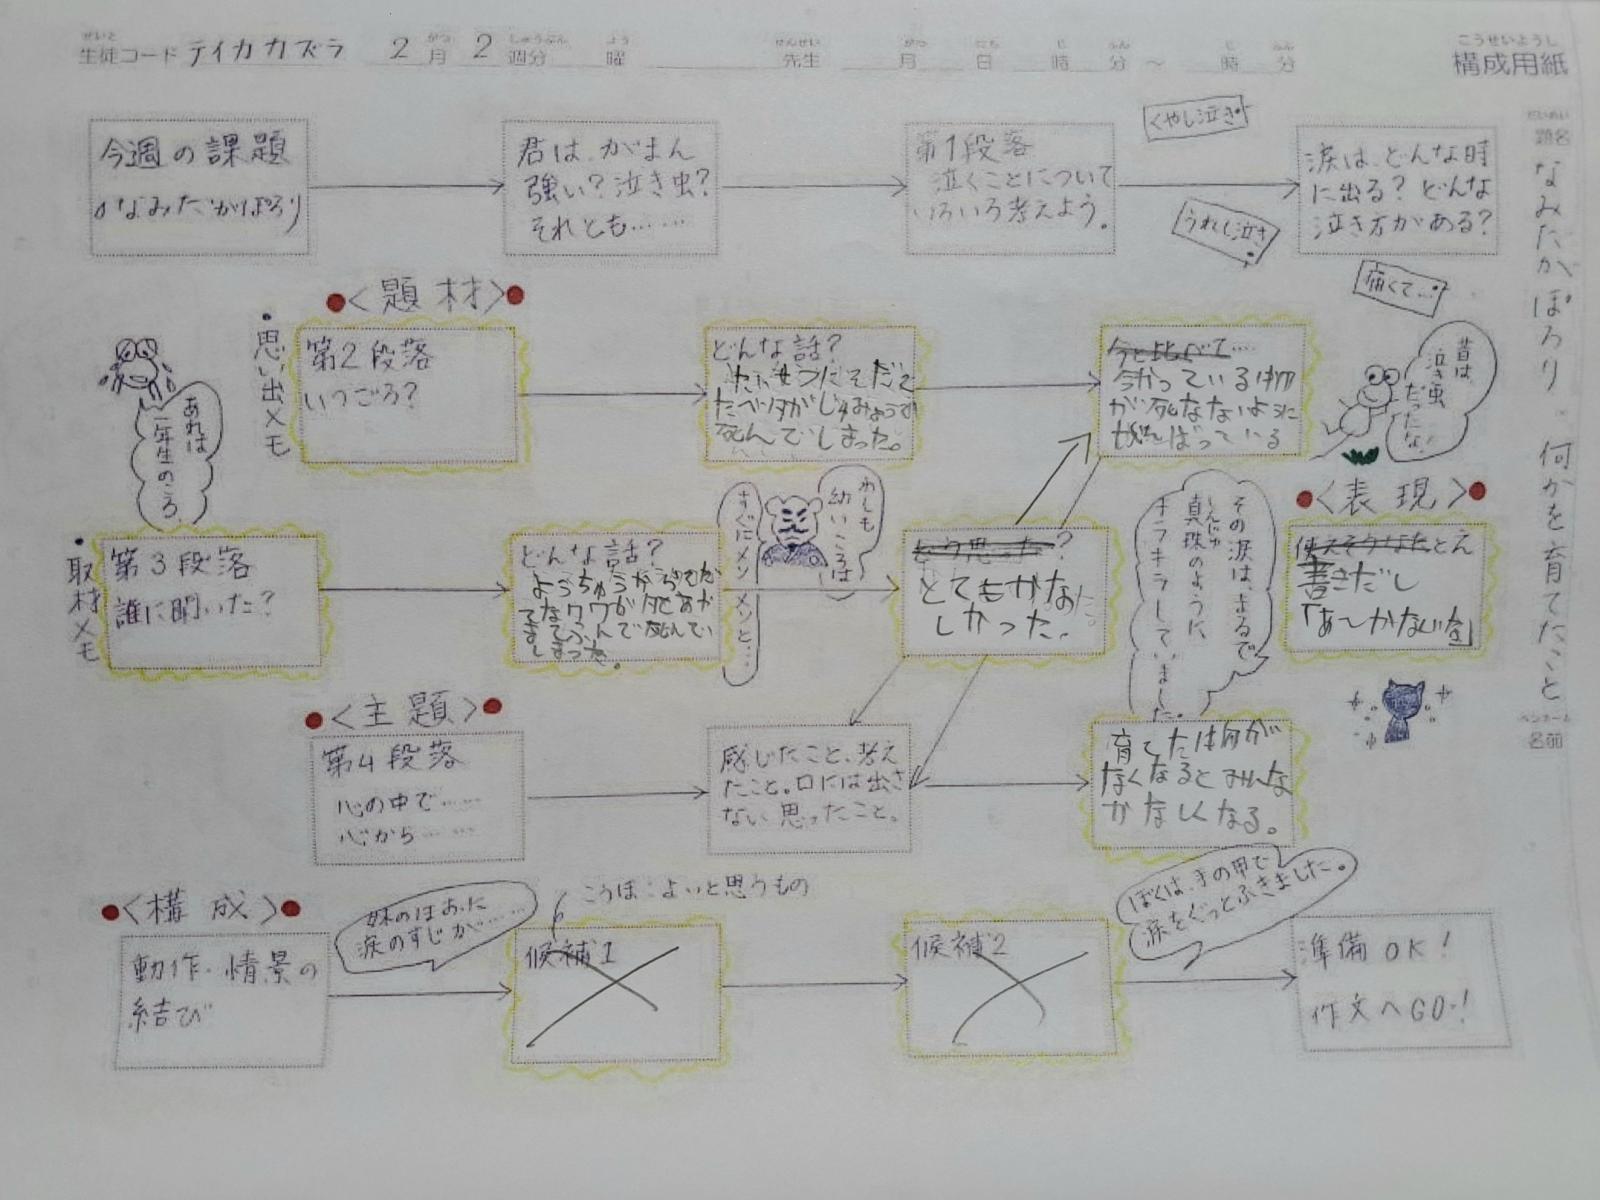 生徒コード テイカカズラ 2月 2週分 曜 先生 月 日 時 分 〜 時 分
構成用紙
題名 なみだがぽろり、何かを育てたこと
名前
今週の課題
なみだがぽろり
君は、がまん
強い?泣き虫?
それとも……
第1段落
泣くことについて
いろいろ考えよう。
くやし泣き
うれし泣き
痛くて…
涙は、どんな時
に出る? どんな
泣き方がある?
<題材>
・思い出メモ
第2段落
いつごろ?
あれは
一年生のころ、
どんな話?
死んでしまった。
今と比べて…
今かっている
が死なないように
がんばっている
昔は、
泣き虫
だったな!
・取材メモ
第3段落
誰に聞いた?
どんな話?
わしも
幼いころは
すぐにメソメソと…
どう思った?
とてもかな
しかった。
その涙は、まるで
真珠のように、
キラキラしていました。
<表現>
使えそうなたとえ
書きだし
<主題>
第4段落
心の中で……
心から……
感じたこと、考え
たこと。口には出さ
ない思ったこと。
育てた何かが
なくなるとみんな
かなしくなる。
<構成>
動作・情景の
結び
妹のほおに
涙のすじが……
こうほ:よいと思うもの
候補1
候補2
ぼくは、手の甲で
涙をぐっとふきました。
準備OK!
作文へGO!